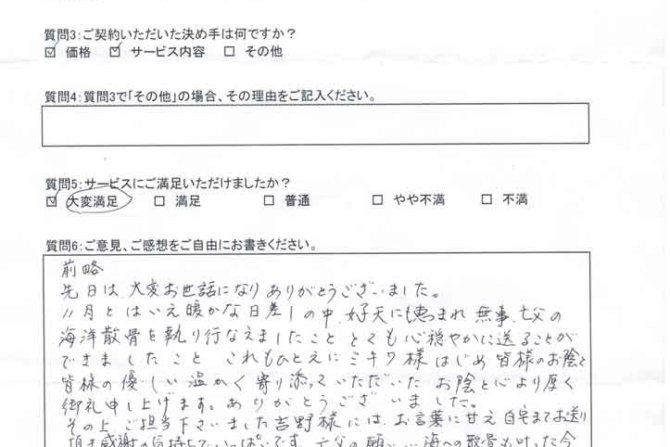 質問3:ご契約いただいた決め手は何ですか?
☑ 価格 ☑ サービス内容 □ その他
質問4:質問3で「その他」の場合、その理由をご記入ください。
質問5:サービスにご満足いただけましたか?
☑ 大変満足 □ 満足 □ 普通 □ やや不満 □ 不満
質問6:ご意見、ご感想をご自由にお書きください。
前略
先日は大変お世話になりありがとうございました。
11月とはいえ暖かな日差しの中、好天にも恵まれ無事、父の
海洋散骨を執り行なえましたこと とても心穏やかに送ることが
できましたこと これもひとえにミキワ様はじめ皆様のお陰と
皆様の優しい温かく寄り添っていただいたお陰と心より厚く
御礼申し上げます。ありがとうございました。
その上ご担当下さいました吉野様には、お言葉に甘え自宅までお送り
頂き感謝の気持ちでいっぱいです。亡父の願い…海への散骨が叶った今